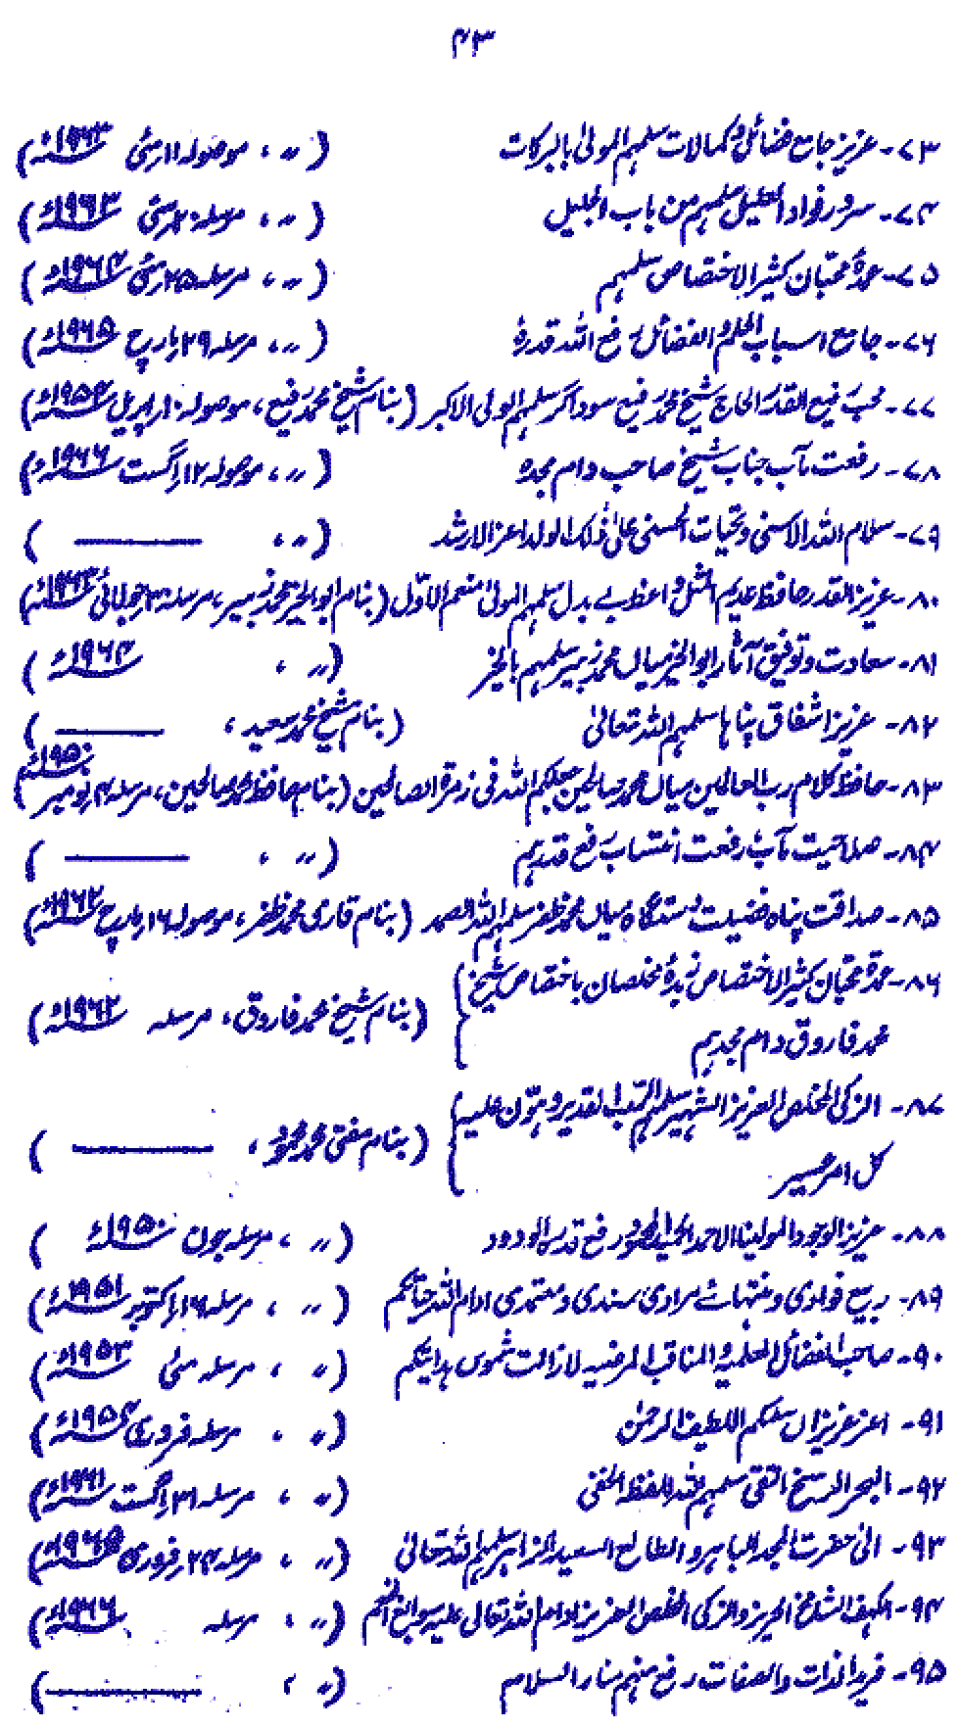 ۴۳
۷۳۔ عزیز جامع فضائل و کمالات سلمہم المولیٰ بالبرکات (〃 ، موصولہ ۱۱ مئی ۱۹۶۳ء)
۷۴۔ سرور فواد العلیل سلمہم من باب الجلیل (〃 ، مرسلہ ۲۰ مئی ۱۹۶۳ء)
۷۵۔ عمدۂ محبّان کثیر الاختصاص سلمہم (〃 ، مرسلہ ۲۵ مئی ۱۹۶۴ء)
۷۶۔ جامع اسباب العلم و الفضائل رفع اللہ قدرہٗ (〃 ، مرسلہ ۲۹ مارچ ۱۹۶۵ء)
۷۷۔ محب رفیع القدر الحاج شیخ محمد رفیع سوداگر سلمہم الولی الاکبر (بنام شیخ محمد رفیع ، موصولہ ۱۰ اپریل ۱۹۵۴ء)
۷۸۔ رفعت مآب جناب شیخ صاحب دام مجدہ (〃 ، موصولہ ۱۲ اگست ۱۹۶۶ء)
۷۹۔ سلام اللہ الاسنی و تحیات الحسنی علیٰ ذالک الولد اعز الارشد (〃 ، ــــــ)
۸۰۔ عزیز القدر حافظ عدیم المثل و اعظ بے بدل سلمہم المولیٰ منعم الاوّل (بنام ابوالخیر محمد زبیر ، مرسلہ ۳۰ جولائی ۱۹۶۳ء)
۸۱۔ سعادت و توفیق آثار ابوالخیر میاں محمد زبیر سلمہم بالخیر (〃 ، ۱۹۶۴ء)
۸۲۔ عزیز اشفاق پناہا سلمہم اللہ تعالیٰ (بنام شیخ محمد سعید ، ــــــ)
۸۳۔ حافظ کلام رب العالمین میاں محمد صالحین جعلکم اللہ فی زمرۃ الصالحین (بنام حافظ محمد صالحین ، مرسلہ ۴ نومبر ۱۹۵۰ء)
۸۴۔ صلاحیت مآب رفعت انتساب رفع قدرہم (〃 ، ــــــ)
۸۵۔ صداقت پناہ فضیلت دستگاہ میاں محمد ظفر سلمہم اللہ الصمد (بنام قاری محمد ظفر ، موصولہ ۱۶ مارچ ۱۹۶۲ء)
۸۶۔ عمدۂ محبّان کثیر الاختصاص زبدۂ مخلصان باختصاص شیخ
محمد فاروق دام مجدہم (بنام شیخ محمد فاروق ، مرسلہ ۱۹۶۲ء)
۸۷۔ الزکی المخلص العزیز الشہیر سلمہم القدیر و ہوّن علیہ
کل امر عسیر (بنام مفتی محمد محمود ، ــــــ)
۸۸۔ عزیز الوجود المولینا الاحمد المحمود رفع قدرہ الودود (〃 ، مرسلہ جون ۱۹۵۰ء)
۸۹۔ ربیع فوادی و منتہائے مرادی سندی و معتمدی ادام اللہ حیاتکم (〃 ، مرسلہ ۱۶ اکتوبر ۱۹۵۱ء)
۹۰۔ صاحب الفضائل العلمیہ و المناقب المرضیہ لا زالت شموس ہدایتکم (〃 ، مرسلہ مئی ۱۹۵۳ء)
۹۱۔ اعز عزیزاں سلمکم اللطیف الرحمٰن (〃 ، مرسلہ فروری ۱۹۵۴ء)
۹۲۔ البحر الرسخ التقی سلمہم اللہ الحفی (〃 ، مرسلہ ۳۱ اگست ۱۹۶۱ء)
۹۳۔ الیٰ حضرت المجد الباہر و الطالع السعید الزاہر سلمہم اللہ تعالیٰ (〃 ، مرسلہ ۲۴ فروری ۱۹۶۵ء)
۹۴۔ الکہف الشامخ الحریز و الزکی المخلص العزیز ادام اللہ تعالیٰ علیہ سوابغ النعم (〃 ، مرسلہ ۱۹۶۶ء)
۹۵۔ فرید الذات والصفات رفع منہم منار السلام (〃 ، ــــــ)